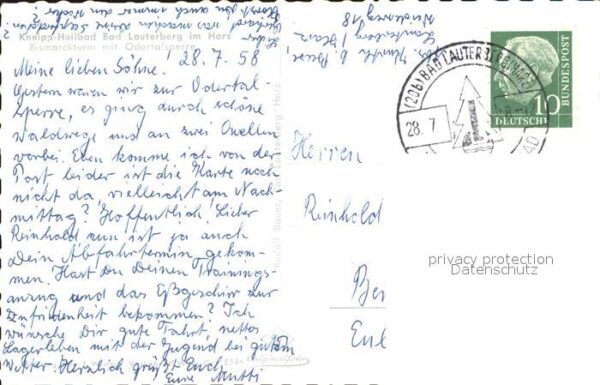 Kneipp-Heilbad Bad Lauterberg im Harz
Bismarckturm mit Odertalsperre
28.7.58
Meine lieben Söhne!
Gestern waren wir zur Odertal-
sperre, es ging durch schöne
Waldwege und an zwei Quellen
vorbei. Eben komme ich von der
Post leider ist die Karte noch
nicht da, vielleicht am Nach-
mittag? Hoffentlich! Lieber
Reinhold nun ist ja auch
Dein Abfahrtermin gekom-
men. Hast Du Deinen Trainings-
anzug und das Eßgeschirr zur
Zufriedenheit bekommen? Ich
wünsche Dir gute Fahrt, nettes
Lagerleben mit der Jugend bei gutem
Wetter. Herzlich grüßt Euch
Eure Mutti
Rudolf Bauer, Lauterberg Harz
(20b) BAD LAUTERBERG (HARZ)
28. 7
DEUTSCHE
BUNDESPOST
10
Herren
Reinhold
Ber
Eul
privacy protection
Datenschutz